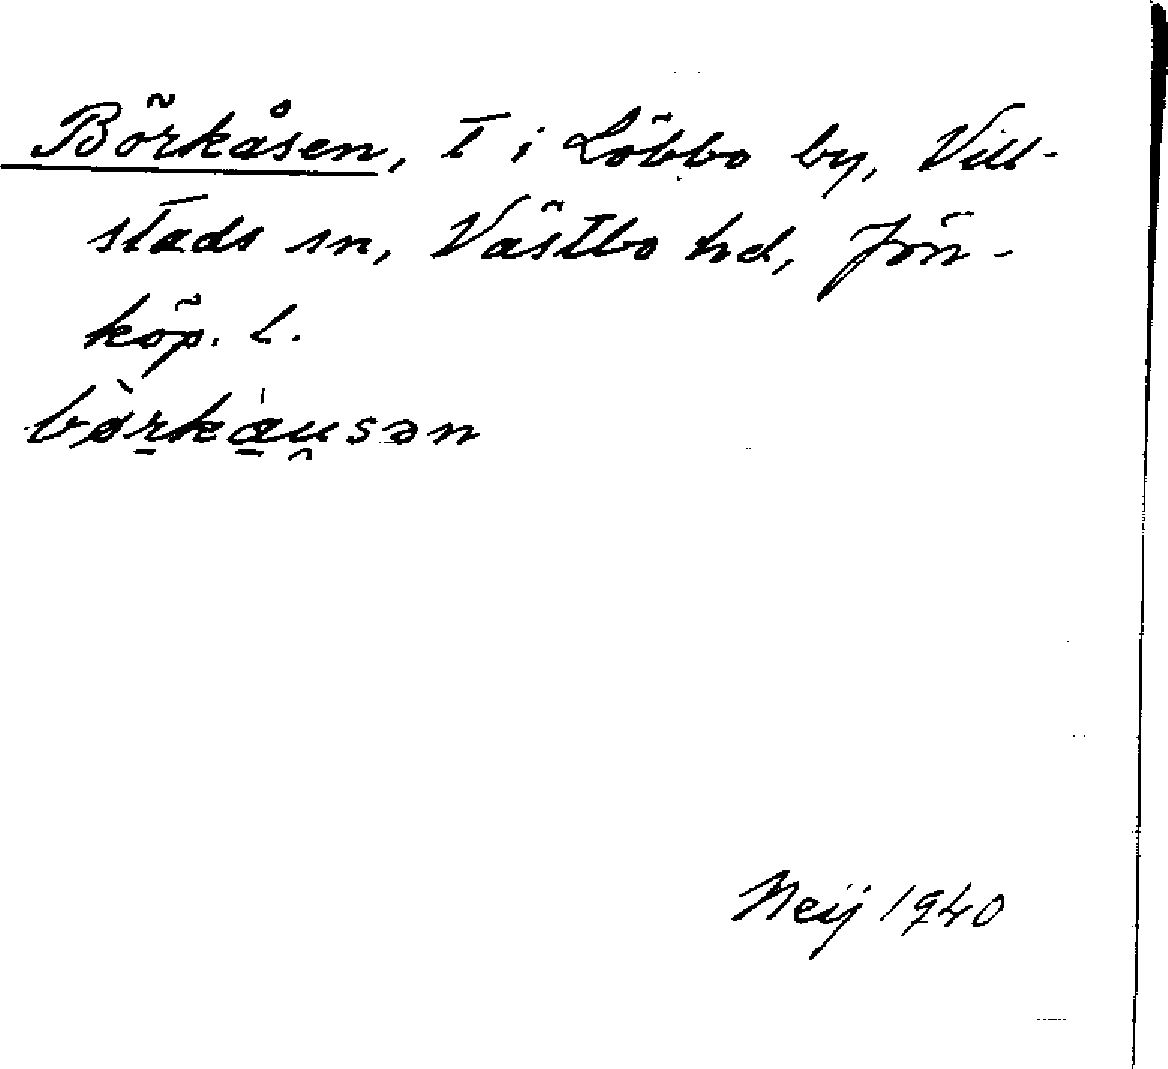 Börkåsen, T i Löbbo by, Vill-
stads sn, Västbo hd, Jön-
köp. l.
bø̀rkàu̯sən
Neij 1940